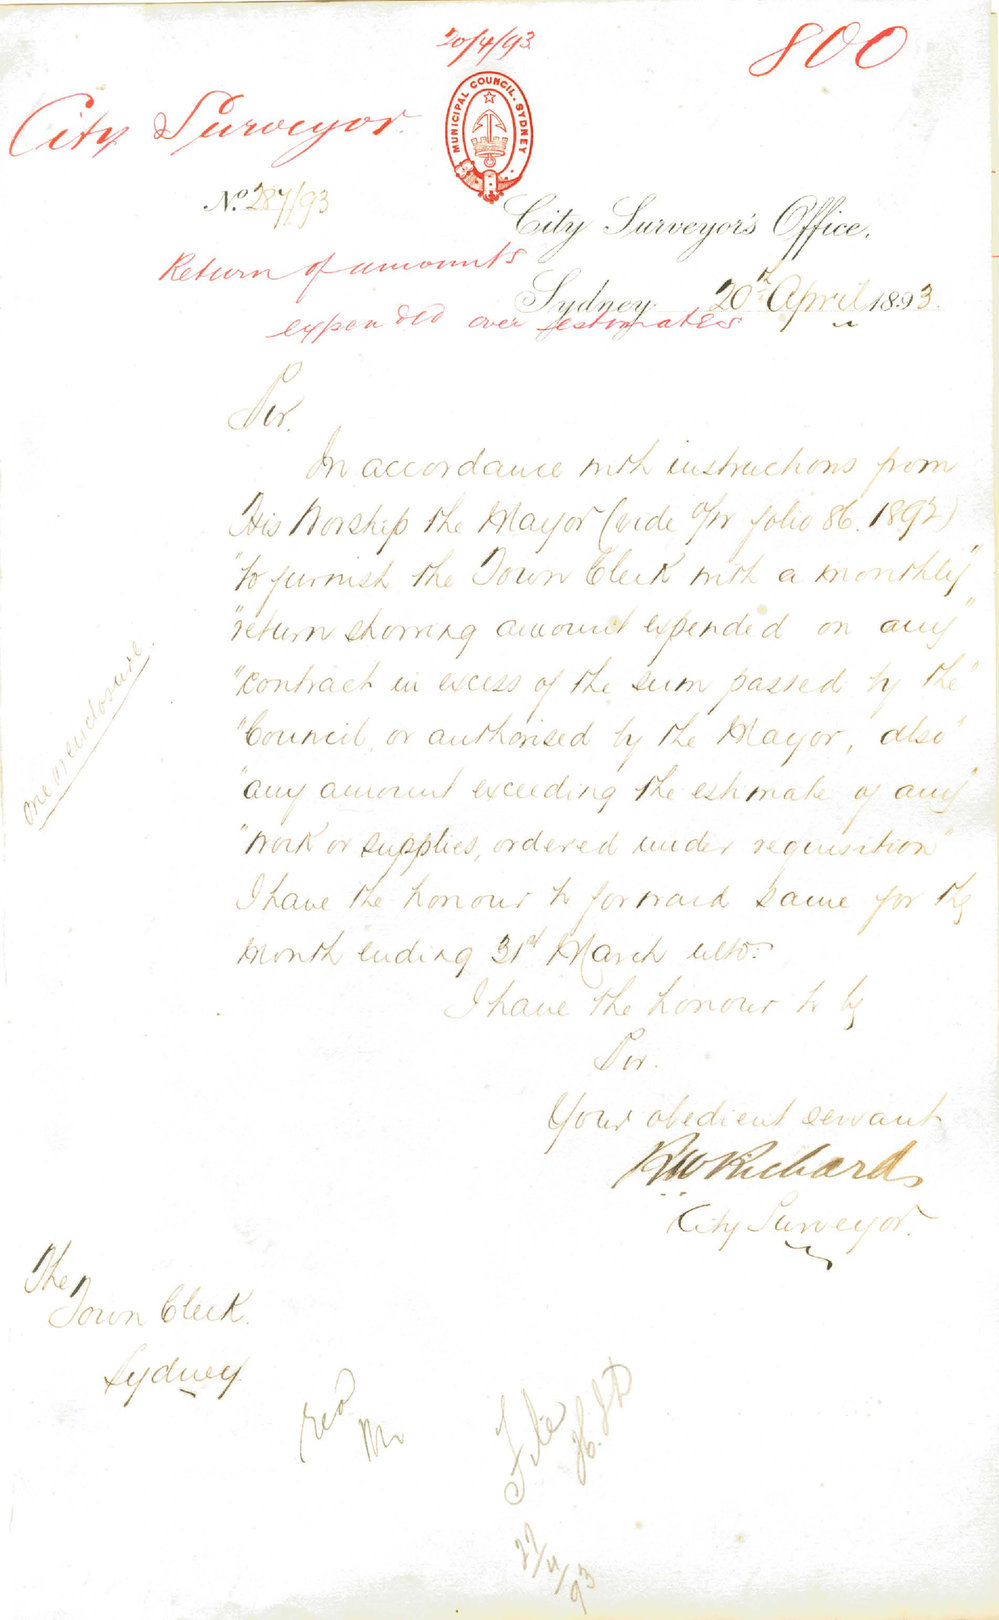 20/4/93
800
City Surveyor.
MUNICIPAL COUNCIL. SYDNEY
No. 287/93
City Surveyor's Office,
Return of amounts
Sydney 20th April 1893.
expended over estimates
Sir.
In accordance with instructions from
His Worship the Mayor (vide folio 86. 1892)
"to furnish the Town Clerk with a monthly"
"return showing amount expended on any"
"contract in excess of the sum passed by the"
"Council, or authorised by the Mayor, also"
"any amount exceeding the estimate of any"
"work or supplies, ordered under requisition"
I have the honour to forward same for the
month ending 31st March ulto:
I have the honour to be
Sir.
Your obedient servant
RW Richards
City Surveyor.
one enclosure.
The
Town Clerk.
Sydney
File
22/4/93